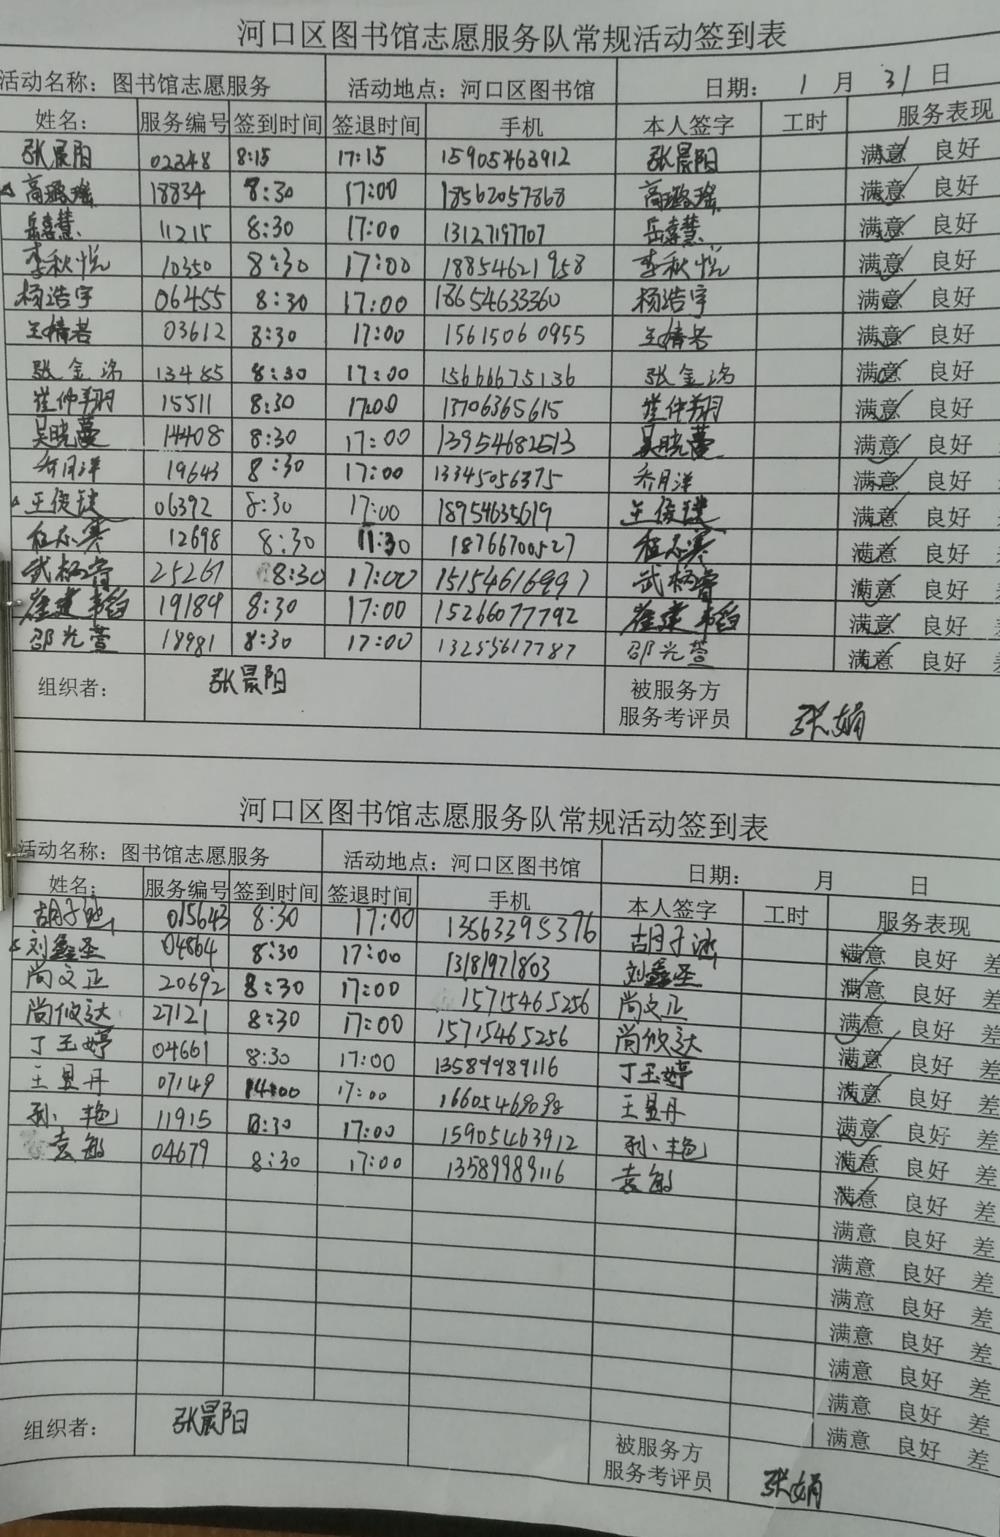 河口区图书馆志愿服务队常规活动签到表
活动名称：图书馆志愿服务 活动地点：河口区图书馆 日期： 1 月 31 日
姓名： 服务编号 签到时间 签退时间 手机 本人签字 工时 服务表现
张晨阳 02348 8:15 17:15 15905463912 张晨阳 满意 良好
高璐瑶 18834 8:30 17:00 18562057868 高璐瑶 满意 良好
岳嘉慧 11215 8:30 17:00 13127197707 岳嘉慧 满意 良好
李秋悦 10350 8:30 17:00 18854621958 李秋悦 满意 良好
杨浩宇 06455 8:30 17:00 18654633360 杨浩宇 满意 良好
王婧若 03612 8:30 17:00 15615060955 王婧若 满意 良好
张金涵 13485 8:30 17:00 15666675136 张金涵 满意 良好
崔仲翔 15511 8:30 17:00 13706365615 崔仲翔 满意 良好
吴晓蔓 14408 8:30 17:00 13954682513 吴晓蔓 满意 良好
乔月洋 19643 8:30 17:00 13345056375 乔月洋 满意 良好
王俊琪 06392 8:30 17:00 18954635619 王俊琪 满意 良好
程忘寒 12698 8:30 11:30 18766700527 程忘寒 满意 良好
武柄睿 25261 8:30 17:00 15154616997 武柄睿 满意 良好
崔建韬 19189 8:30 17:00 15266077792 崔建韬 满意 良好
邵光萱 18981 8:30 17:00 13255617787 邵光萱 满意 良好
组织者： 张晨阳 被服务方
服务考评员 张娟
河口区图书馆志愿服务队常规活动签到表
活动名称：图书馆志愿服务 活动地点：河口区图书馆 日期： 月 日
姓名： 服务编号 签到时间 签退时间 手机 本人签字 工时 服务表现
胡子涵 015643 8:30 17:00 13563395376 胡子涵 满意 良好 差
刘鑫圣 04864 8:30 17:00 13181971803 刘鑫圣 满意 良好 差
尚文正 20692 8:30 17:00 15715465256 尚文正 满意 良好 差
尚攸达 27121 8:30 17:00 15715465256 尚攸达 满意 良好 差
丁玉婷 04661 8:30 17:00 13589989116 丁玉婷 满意 良好 差
王昱丹 07149 14:00 17:00 16605469098 王昱丹 满意 良好 差
孙小艳 11915 8:30 17:00 15905463912 孙小艳 满意 良好 差
袁敏 04679 8:30 17:00 13589989116 袁敏 满意 良好 差
满意 良好 差
满意 良好 差
满意 良好 差
满意 良好 差
满意 良好 差
满意 良好 差
满意 良好 差
组织者： 张晨阳 被服务方
服务考评员 张娟